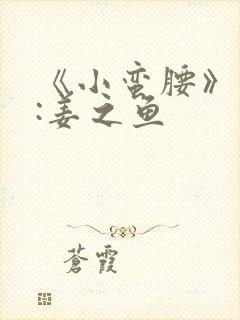 《小蛮腰》
:姜之鱼
蒼霞